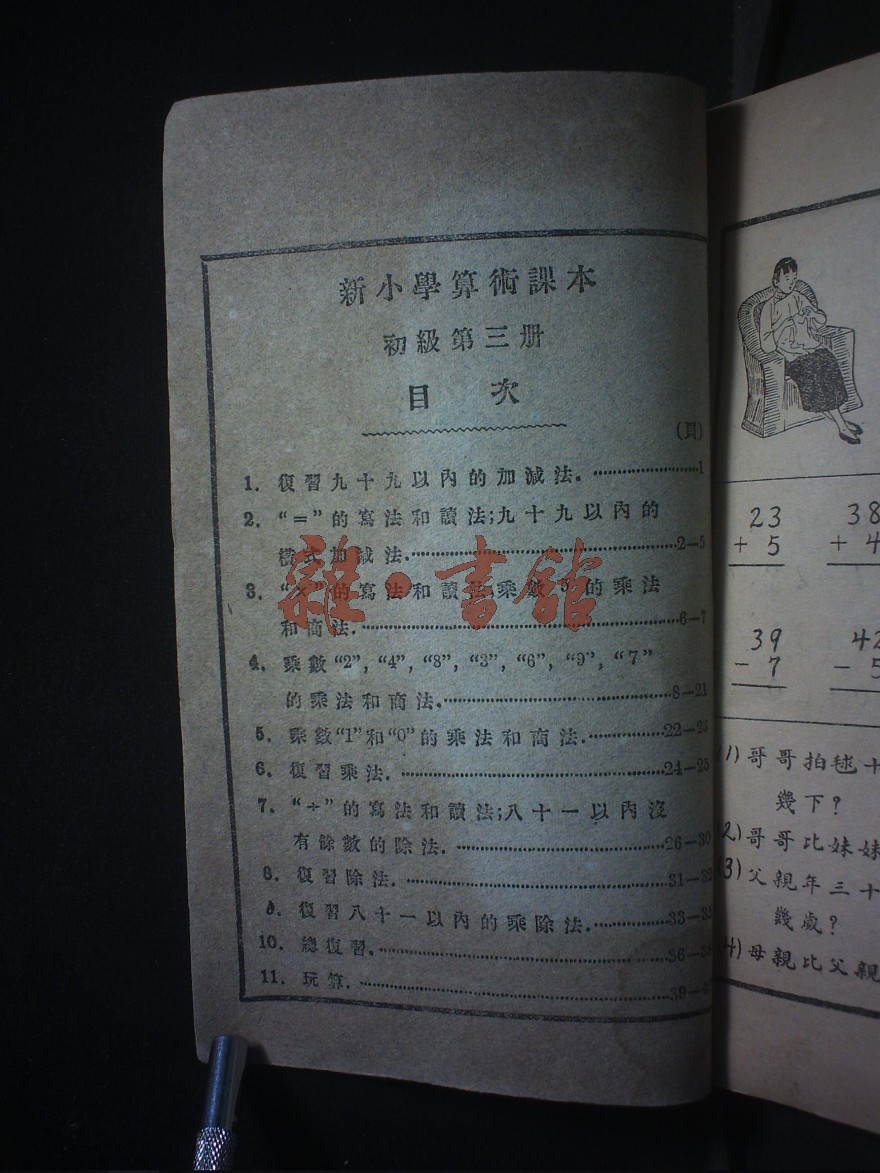 新小學算術課本
初級第三册
目 次
(頁)
1. 復習九十九以內的加減法. 1
2. “=”的寫法和讀法;九十九以內的
橫式加減法. 2—5
3. “×”的寫法和讀法;乘數“5”的乘法
和商法. 6—7
4. 乘數“2”, “4”, “8”, “3”, “6”, “9”, “7”
的乘法和商法. 8—21
5. 乘數“1”和“0”的乘法和商法. 22—23
6. 復習乘法. 24—25
7. “÷”的寫法和讀法;八十一以內沒
有餘數的除法. 26—30
8. 復習除法. 31—32
9. 復習八十一以內的乘除法. 33—35
10. 總復習. 36—
11. 玩算. 39—
雜·書館
23
+ 5
38
+ 4
39
- 7
42
- 5
(1) 哥哥拍毬十
幾下?
(2) 哥哥比妹妹
(3) 父親年三十
幾歲?
(4) 母親比父親